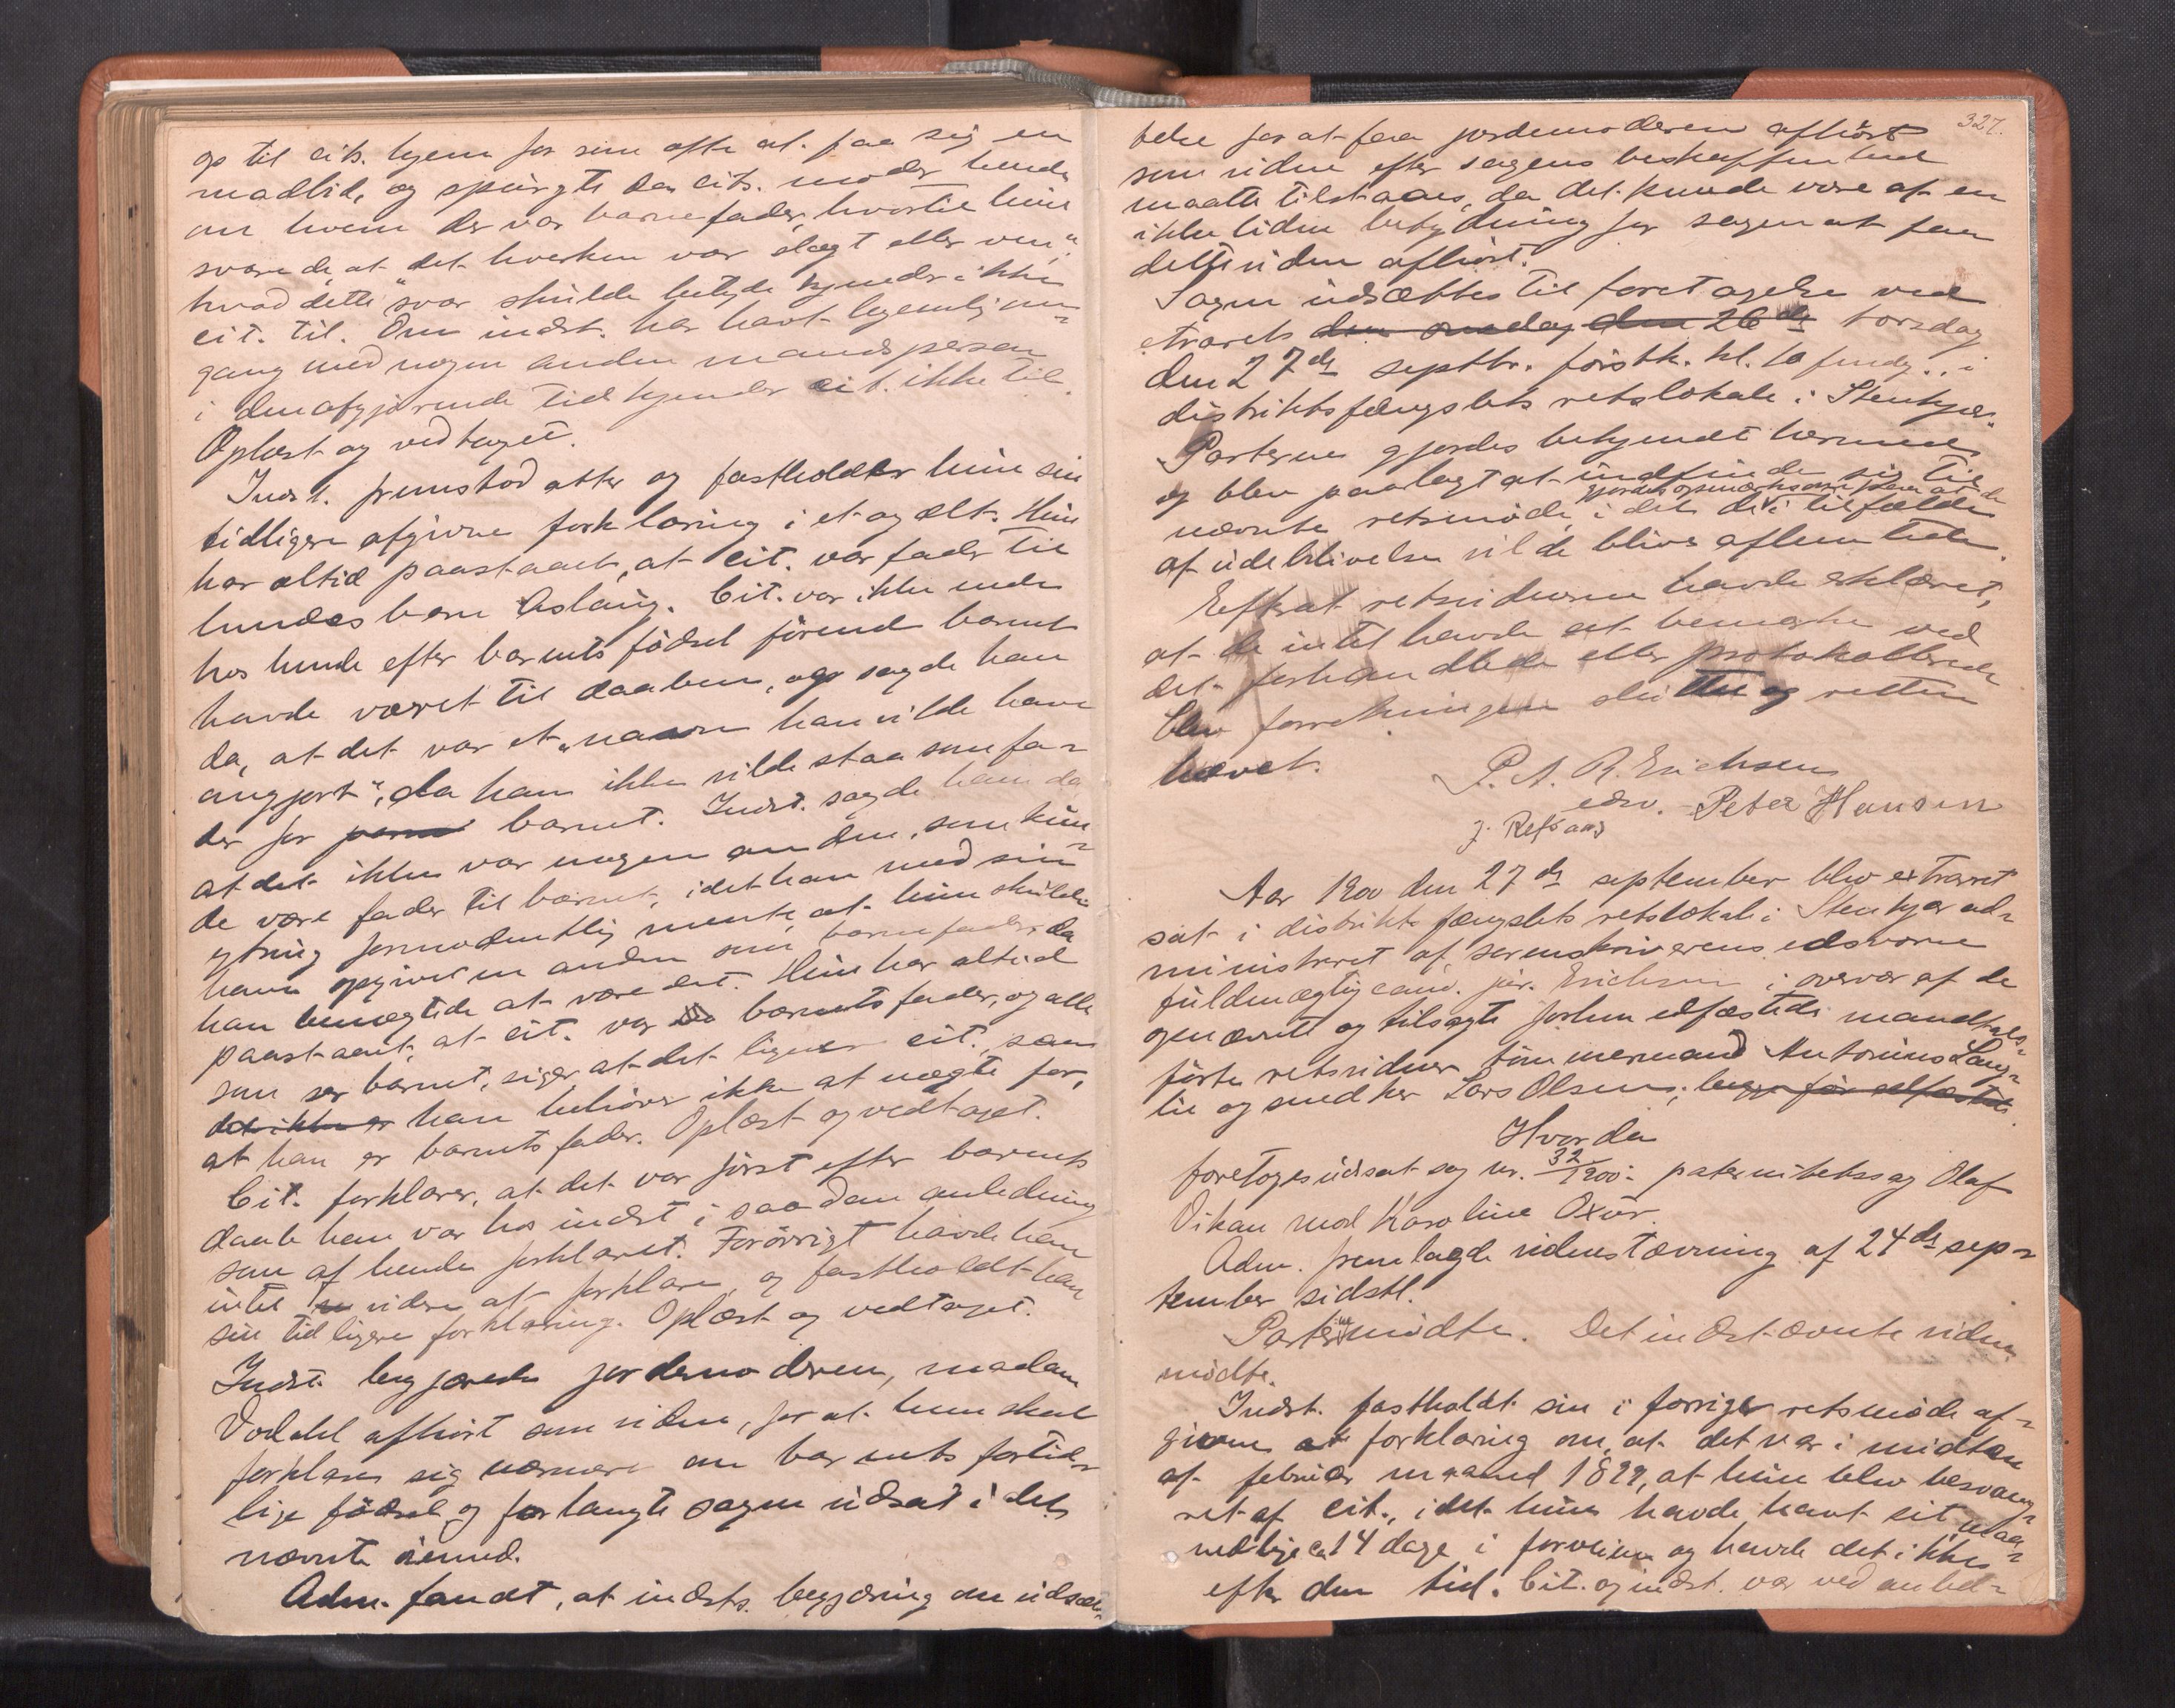 op til cits. hjem for som ofte at faa sig en
madbid, og spurgte da cits. moder hende
om hvem der var barnefader, hvortil hun
svarede, at det hverken var slægt eller ven",
hvad dette svar skulde betyde kjender ikke
cit. til. Om indst. har havt legemlig om-
gang med nogen anden mandsperson
i den afgjørende tid kjender cit. ikke til.
Oplæst og vedtaget.
Indst. fremstod atter og fastholder hun sin
tidligere afgivne forklaring i et og alt. Hun
har altid paastaaet, at cit. var fader til
hendes barn Aslaug. Cit. var ikke inde
hos hende efter barnets fødsel førend barnet
havde været til daaben, og sagde han
da, at det var et "navn han vilde have
angjort", da han ikke vilde staa som fa-
der for barnet. Indst. sagde ham da
at det ikke var nogen anden, som kun-
de være fader til barnet, idet han med sin
ytring formodentlig mente, at hun skulde
have opgivet en anden som barnefader, da
han benægtede at være det. Hun har altid
paastaaet, at cit. var barnets fader, og alle
som ser barnet, siger, at det ligner cit., saa
det ikke er han behøver ikke at nægte for,
at han er barnets fader. Oplæst og vedtaget.
Cit. forklarer, at det var først efter barnets
daab han var hos indst i saadan anledning
som af hende forklaret. Forøvrigt havde han
intet videre at forklare, og fastholdt han
sin tidligere forklaring. Oplæst og vedtaget.
Indst. begjærede jordemoderen, madam
Voldahl afhørt som vidne, for at hun skal
forklare sig nærmere om barnets fortid-
lige fødsel og forlangte sagen udsat i det
nævnte øiemed.
Adm. fandt, at indsts. begjæring om udsæt-
327.
telse for at faa jordemoderen afhørt
som vidne efter sagens beskaffenhed
maatte tilstaaes, da det kunde være af en
ikke liden betydning for sagen at faa
dette vidne afhørt.
Sagen udsættes til foretagelse ved
extraret den onsdag den 26de torsdag
den 27de septbr. førstk. kl. 10 fmdg. i
distriktsfængslets retslokale i Stenkjær.
Parterne gjordes bekjendt hermed
og blev paalagt at indfinde sig til
gjordes opmærksom paa at de
nævnte retsmøde, i det de i tilfælde
af udeblivelse vilde blive afhentede.
Efterat retsvidnerne havde erklæret,
at de intet havde at bemærke ved
det forhandlede eller protokollerede
blev forretningen sluttet og retten
hævet.
P. A. R. Erichsen
edsv.
Peter Hansen
J. Refsaas
Aar 1900 den 27de september blev extraret
sat i distriktsfængslets retslokale i Stenkjær ad-
ministreret af sorenskriverens edsvorne
fuldmægtig cand. jur. Erichsen i overvær af de
opnævnte og tilsagte forhen edfæstede mandtals-
førte retsvidner tømmermand Antonius Lang-
lie og smed her Lars Olsen; begge før edfæstede
Hvorda
foretoges udsat sag nr. 32/1900: paternitetssag Olaf
Vikan mod Karoline Oxur.
Adm. fremlagde vidnestævning af 24de sep-
tember sidstl.
Parterne mødte. Det indstævnte vidne
mødte.
Indst. fastholdt sin i forrige retsmøde af-
givne forklaring om, at det var i midten
af februar maaned 1899, at hun blev besvang-
ret af cit., idet hun havde havt sit maa-
nedlige ca 14 dage i forveien og havde det ikke
efter den tid. Cit. og indst. var ved anled-